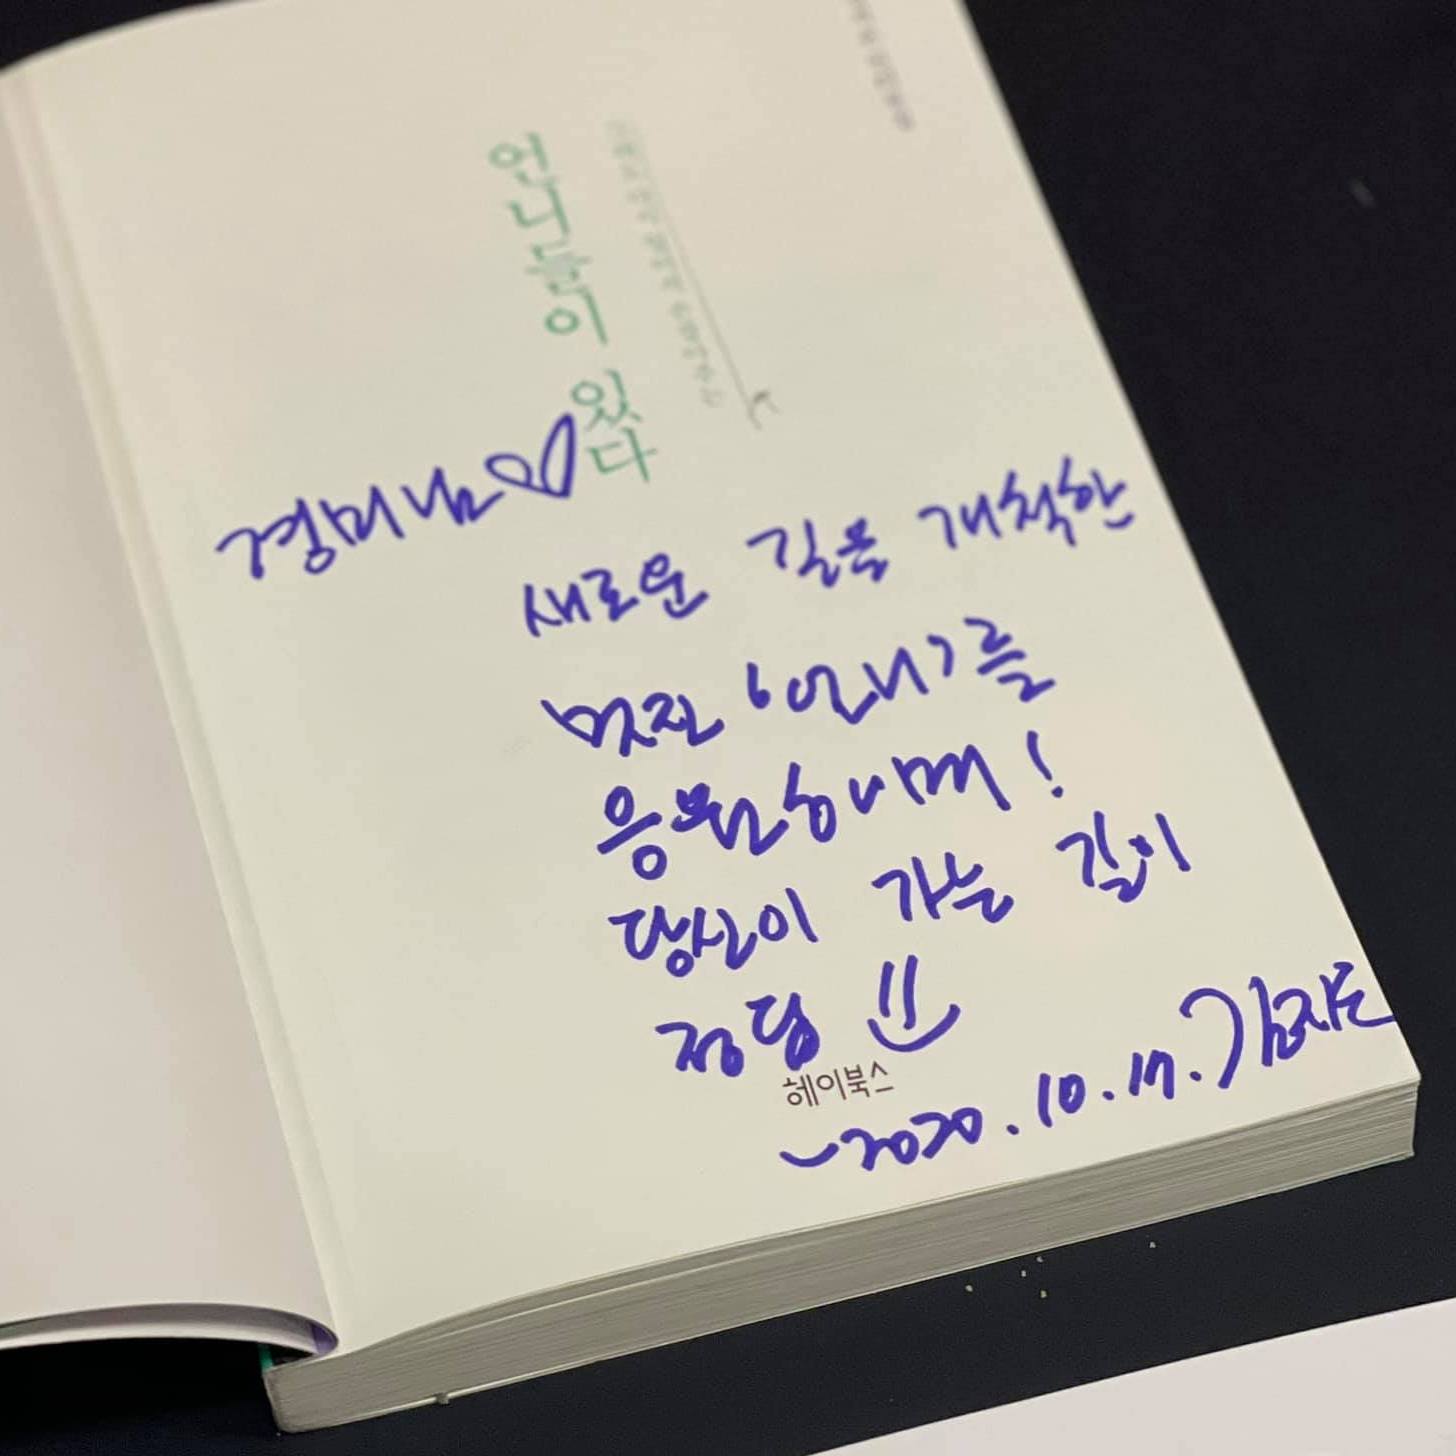 언니들이 있다
경미님♡
새로운 길을 개척한
멋진 '언니'를
응원하며!
당신이 가는 길이
정답
헤이북스
~2020.10.17. 김지은